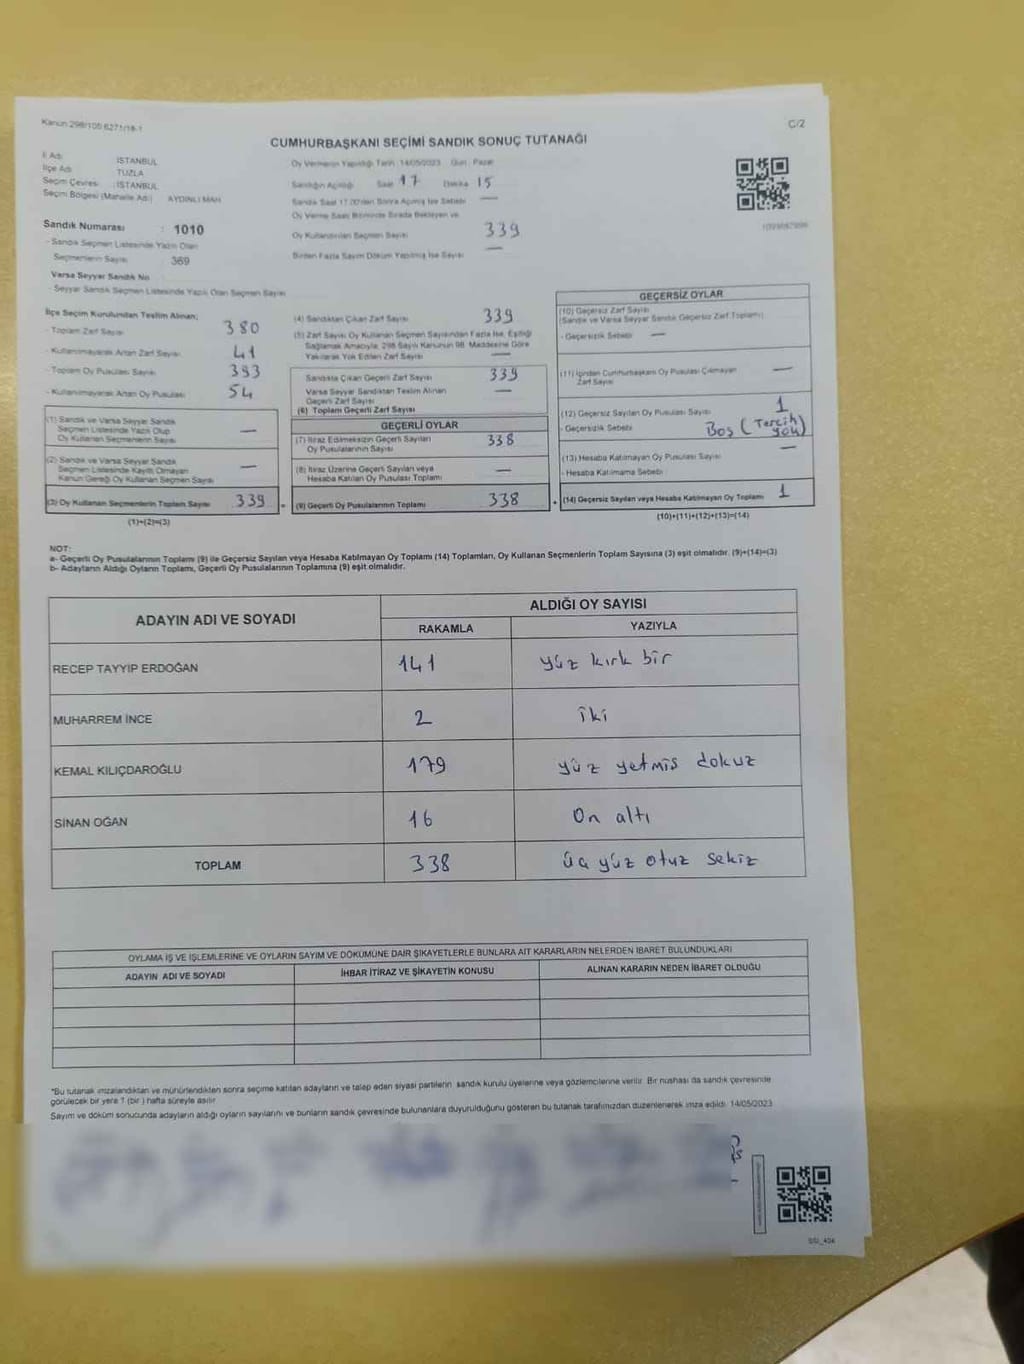 Kanun 298/105 6271/18-1
C/2
CUMHURBAŞKANI SEÇİMİ SANDIK SONUÇ TUTANAĞI
İl Adı İSTANBUL
İlçe Adı TUZLA
Seçim Çevresi : İSTANBUL
Seçim Bölgesi (Mahalle Adı) AYDINLI MAH
Oy Vermenin Yapıldığı Tarih 14/05/2023 Gün: Pazar
Sandığın Açıldığı Saat 17 Dakika 15
Sandık Saat 17.00'den Sonra Açılmış İse Sebebi —
Oy Verme Saati Bitiminde Sırada Bekleyen ve
Oy Kullandırılan Seçmen Sayısı 339
Birden Fazla Sayım Döküm Yapılmış İse Sayısı —
Sandık Numarası : 1010
- Sandık Seçmen Listesinde Yazılı Olan
Seçmenlerin Sayısı 369
Varsa Seyyar Sandık No
- Seyyar Sandık Seçmen Listesinde Yazılı Olan Seçmen Sayısı
İlçe Seçim Kurulundan Teslim Alınan;
- Toplam Zarf Sayısı 380
- Kullanılmayarak Artan Zarf Sayısı 41
- Toplam Oy Pusulası Sayısı 393
- Kullanılmayarak Artan Oy Pusulası 54
(1) Sandık ve Varsa Seyyar Sandık
Seçmen Listesinde Yazılı Olup
Oy Kullanan Seçmenlerin Sayısı —
(2) Sandık ve Varsa Seyyar Sandık
Seçmen Listesinde Kayıtlı Olmayan
Kanun Gereği Oy Kullanan Seçmen Sayısı —
(3) Oy Kullanan Seçmenlerin Toplam Sayısı 339
(1)+(2)=(3)
(4) Sandıktan Çıkan Zarf Sayısı 339
(5) Zarf Sayısı Oy Kullanan Seçmen Sayısından Fazla İse, Eşitliği
Sağlamak Amacıyla, 298 Sayılı Kanunun 98. Maddesine Göre
Yakılarak Yok Edilen Zarf Sayısı —
Sandıkta Çıkan Geçerli Zarf Sayısı 339
Varsa Seyyar Sandıktan Teslim Alınan
Geçerli Zarf Sayısı —
(6) Toplam Geçerli Zarf Sayısı
GEÇERLİ OYLAR
(7) İtiraz Edilmeksizin Geçerli Sayılan
Oy Pusulalarının Sayısı 338
(8) İtiraz Üzerine Geçerli Sayılan veya
Hesaba Katılan Oy Pusulası Toplamı —
(9) Geçerli Oy Pusulalarının Toplamı 338
GEÇERSİZ OYLAR
(10) Geçersiz Zarf Sayısı
(Sandık ve Varsa Seyyar Sandık Geçersiz Zarf Toplamı)
- Geçersizlik Sebebi —
(11) İçinden Cumhurbaşkanı Oy Pusulası Çıkmayan
Zarf Sayısı —
(12) Geçersiz Sayılan Oy Pusulası Sayısı 1
- Geçersizlik Sebebi Boş (Tercih yok)
(13) Hesaba Katılmayan Oy Pusulası Sayısı —
- Hesaba Katılmama Sebebi
(14) Geçersiz Sayılan veya Hesaba Katılmayan Oy Toplamı 1
(10)+(11)+(12)+(13)=(14)
NOT:
a- Geçerli Oy Pusulalarının Toplamı (9) ile Geçersiz Sayılan veya Hesaba Katılmayan Oy Toplamı (14) Toplamları, Oy Kullanan Seçmenlerin Toplam Sayısına (3) eşit olmalıdır. (9)+(14)=(3)
b- Adayların Aldığı Oyların Toplamı, Geçerli Oy Pusulalarının Toplamına (9) eşit olmalıdır.
ADAYIN ADI VE SOYADI
ALDIĞI OY SAYISI
RAKAMLA YAZIYLA
RECEP TAYYIP ERDOĞAN 141 yüz kırk bir
MUHARREM İNCE 2 iki
KEMAL KILIÇDAROĞLU 179 yüz yetmiş dokuz
SİNAN OĞAN 16 On altı
TOPLAM 338 üç yüz otuz sekiz
OYLAMA İŞ VE İŞLEMLERİNE VE OYLARIN SAYIM VE DÖKÜMÜNE DAİR ŞİKAYETLERLE BUNLARA AİT KARARLARIN NELERDEN İBARET BULUNDUKLARI
ADAYIN ADI VE SOYADI İHBAR İTİRAZ VE ŞİKAYETİN KONUSU ALINAN KARARIN NEDEN İBARET OLDUĞU
*Bu tutanak imzalandıktan ve mühürlendikten sonra seçime katılan adayların ve talep eden siyasi partilerin sandık kurulu üyelerine veya gözlemcilerine verilir. Bir nüshası da sandık çevresinde
görülecek bir yere 1 (bir) hafta süreyle asılır.
Sayım ve döküm sonucunda adayların aldığı oyların sayılarını ve bunların sandık çevresinde bulunanlara duyurulduğunu gösteren bu tutanak tarafımızdan düzenlenerek imza edildi. 14/05/2023